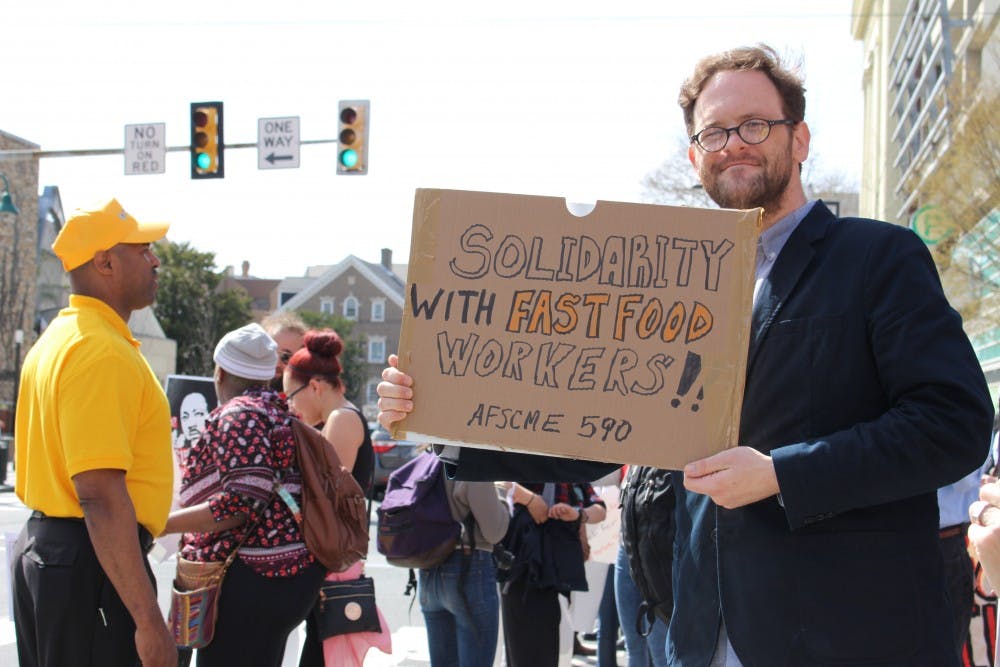 NO
TURN
ON
RED
ONE
WAY
SOLIDARITY
WITH FAST FOOD
WORKERS!!
AFSCME 590